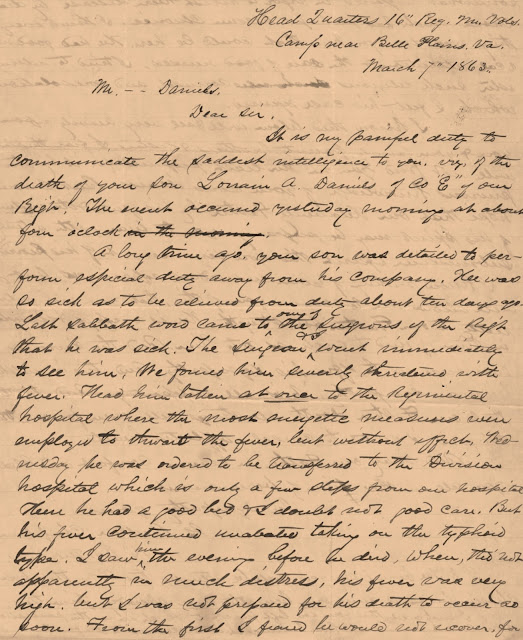 Head Quarters 16th Reg. Me. Vols.
Camp near Belle Plains, Va.
March 7th 1863.
Mr. -- Daniels.
Dear Sir.
It is my painful duty to
communicate the saddest intelligence to you, viz, of the
death of your son Lorrain A. Daniels of Co "E" of our
Regt. The event occured yesterday morning at about
four o'clock in the morning.
A long time ago, your son was detailed to per-
form especial duty away from his company. Hee was
so sick as to be relieved from duty about ten days ago.
Last sabbath word came to one of the surgeons of the Regt
that he was sick. The surgeon & I went immediately
to see him. We found him severely threatened with
fever. Had him taken at once to the Regimental
hospital where the most energetic measures were
employed to thwart the fever, but without effect. Wed-
nesday he was ordered to be transfered to the Division
hospital which is only a few steps from our hospital
Here he had a good bed & I doubt not good care. But
his fever continued unabated taking on the typhoid
type. I saw him the evening before he died, when, tho' not
apparently in much distress, his fever was very
high. but I was not prepared for his death to occur so
soon. From the first I feared he would not recover, for